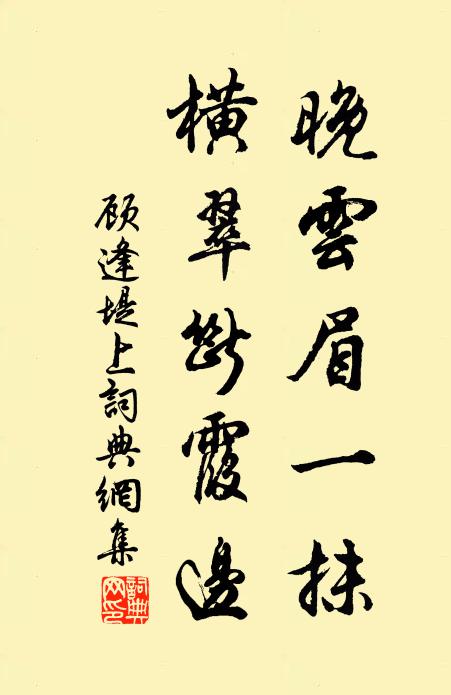 晚雲眉一抹
橫翠斷霞邊
顾逢堤上詞典網集
詞典網印